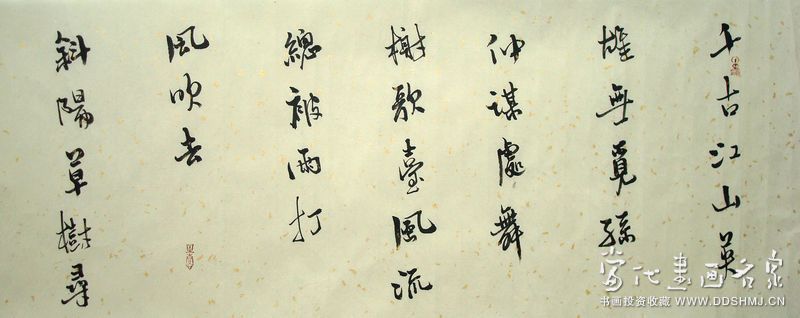 千古江山英
雄無覓孫
仲謀處舞
榭歌臺風流
總被雨打
風吹去
斜陽草樹尋
當代書画名家
书画投资收藏 WWW.DDSHMJ.CN